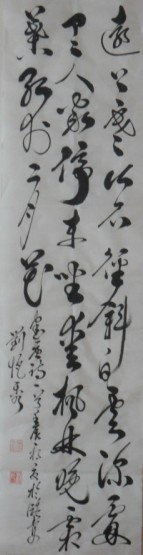 遠上寒山石徑斜白雲深處
有人家停車坐愛楓林晚霜
葉紅於二月花
唐詩一首
劉